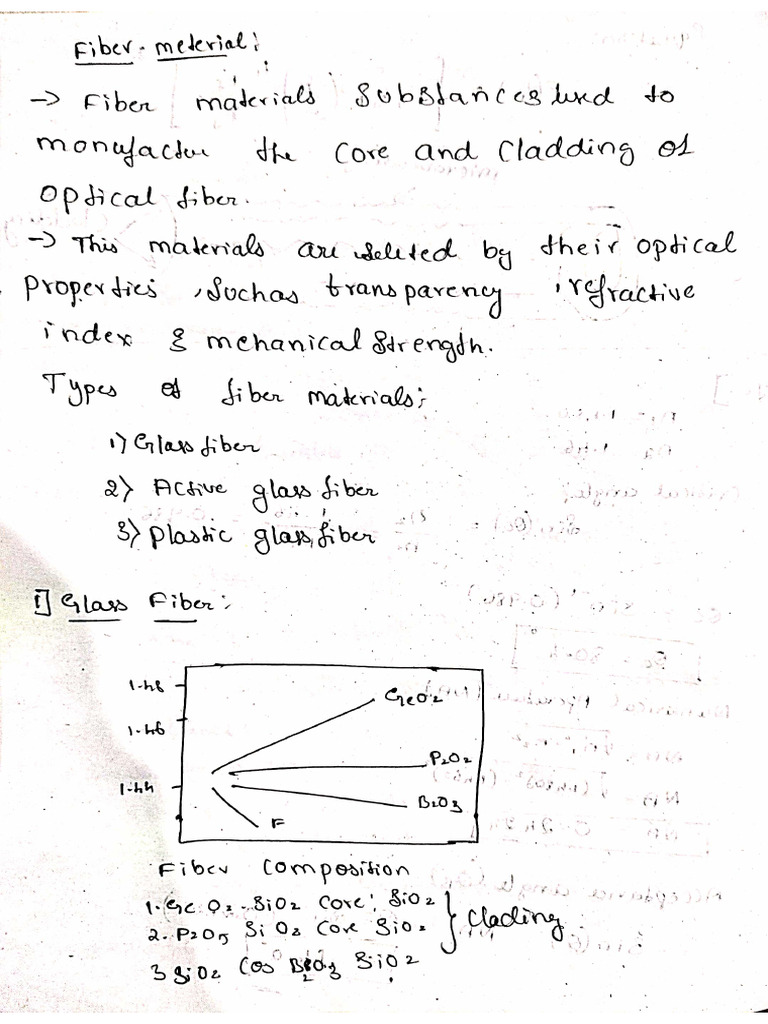 Fiber - meterial:
-> Fiber materials Substances used to
monufactur the core and cladding of
optical fiber.
-> This materials are seleted by their optical
properties, Suchas transparency, refractive
index & mehanical Strength.
Types of fiber materials:
1) Glass fiber
2) Active glass fiber
3) plastic glass fiber
1] Glass Fiber:
1.48
GeO2
1.46
P2O2
1.44
B2O3
F
Fiber composition
1. GeO2-SiO2 Core: SiO2
2. P2O5 SiO2 Core SiO2
Clading
3 SiO2 Cos B2O3 SiO2